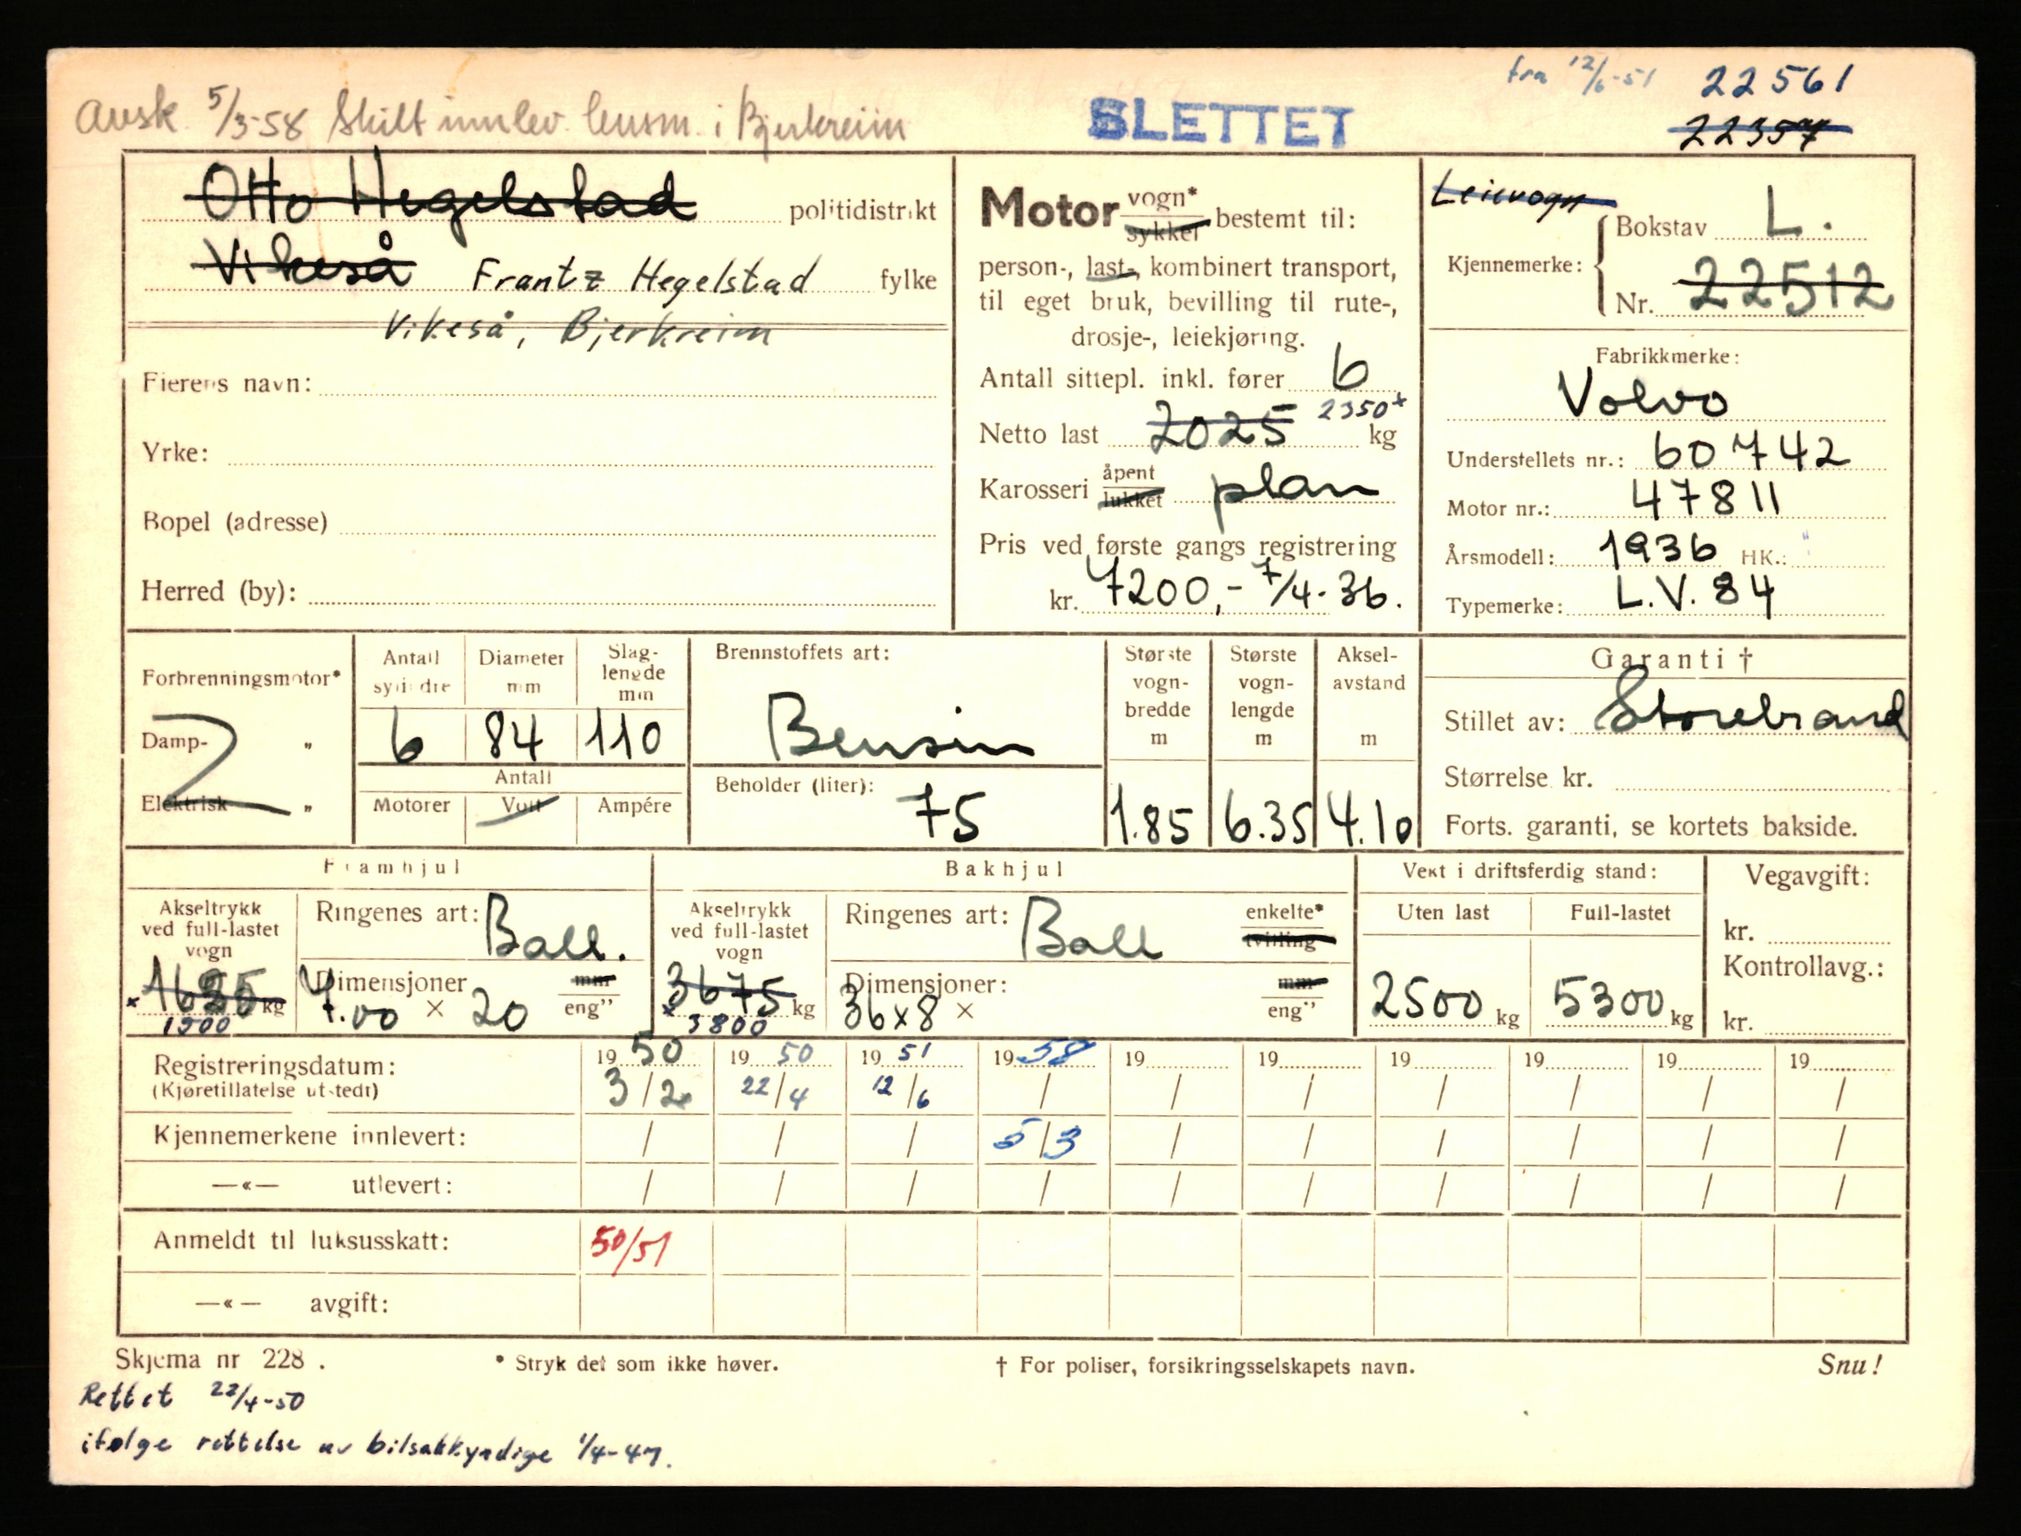 fra 12/6-51 22561
Avsk. 5/3-58 Skilt innlev. lensm. i Bjerkreim SLETTET 22357
Otto Hegelstad politidistrikt
Vikeså Frantz Hegelstad fylke
Vikeså, Bjerkreim
Eierens navn:
Yrke:
Bopel (adresse)
Herred (by):
Motor vogn* sykkel bestemt til:
person-, last-, kombinert transport,
til eget bruk, bevilling til rute-,
drosje-, leiekjøring.
Antall sittepl. inkl. fører 6
Netto last 2025 2350* kg
Karosseri åpent lukket plan
Pris ved første gangs registrering
kr. 7200,- 7/4-36.
Leievogn
Kjennemerke: Bokstav L.
Nr. 22512
Fabrikkmerke:
Volvo
Understellets nr.: 60742
Motor nr.: 47811
Årsmodell: 1936 HK.:
Typemerke: L.V. 84
Forbrenningsmotor*
Damp- „
Elektrisk „
Antall sylindre 6
Diameter mm 84
Slag-lengde mm 110
Antall
Motorer Volt Ampére
Brennstoffets art:
Bensin
Beholder (liter):
75
Største vogn-bredde m 1.85
Største vogn-lengde m 6.35
Aksel-avstand m 4.10
Garanti †
Stillet av: Storebrand
Størrelse kr.
Forts. garanti, se kortets bakside.
Framhjul
Akseltrykk ved full-lastet vogn
* 1625 kg
1500
Ringenes art: Ball.
Dimensjoner mm
7.00 × 20 eng”
Bakhjul
Akseltrykk ved full-lastet vogn
3675 kg
* 3800
Ringenes art: Ball enkelte* tvilling
Dimensjoner: mm
36x8 × eng”
Vekt i driftsferdig stand:
Uten last Full-lastet
2500 kg 5300 kg
Vegavgift:
kr.
Kontrollavg.:
kr.
Registreringsdatum: 19 50 19 50 19 51 19 58 19 19 19 19 19 19
(Kjøretillatelse utstedt) 3/2 22/4 12/6 / / / / / / /
Kjennemerkene innlevert: / / / 5/3 / / / / / /
—«— utlevert: / / / / / / / / / /
Anmeldt til luksusskatt: 50/51
—«— avgift:
Skjema nr 228. * Stryk det som ikke høver. † For poliser, forsikringsselskapets navn. Snu!
Rettet 22/4-50
ifølge rettelse av bilsakkyndige 1/4-47.